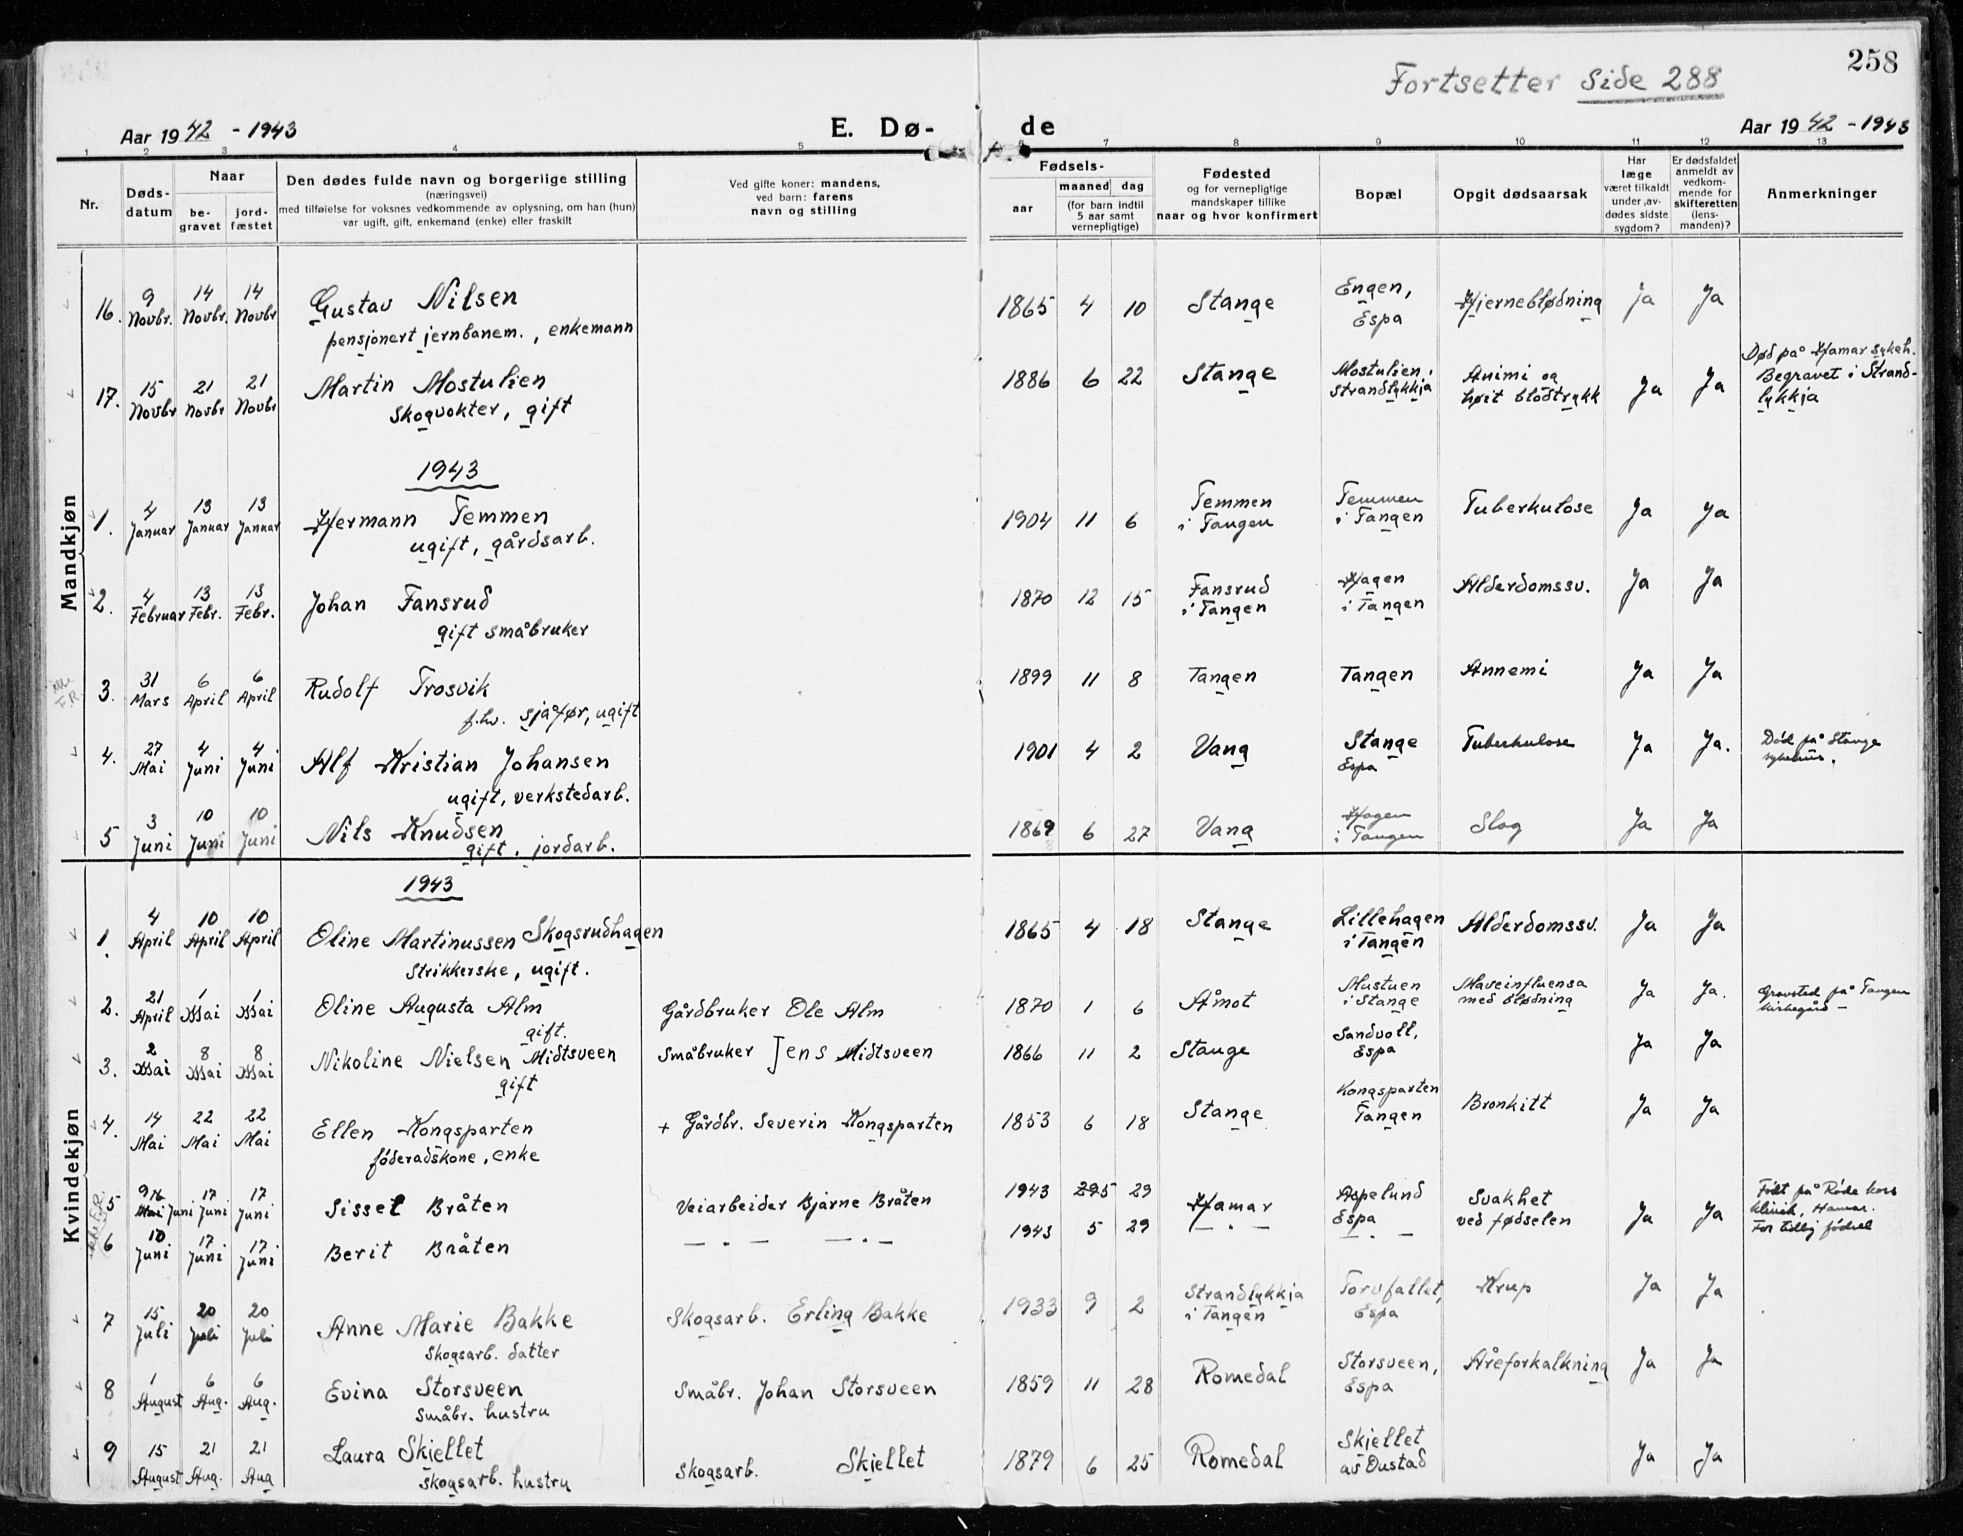 258
Fortsetter Side 288
Aar 1942 - 1943
E. Dø-
de
Aar 1942 - 1943
1 2 3 4 5 6 7 8 9 10 11 12 13
Nr.
Døds-
datum
Naar
be-
gravet
jord-
fæstet
Den dødes fulde navn og borgerlige stilling
(næringsvei)
med tilføielse for voksnes vedkommende av oplysning, om han (hun)
var ugift, gift, enkemand (enke) eller fraskilt
Ved gifte koner: mandens,
ved barn: farens
navn og stilling
Fødsels-
aar
maaned dag
(for barn indtil
5 aar samt
vernepligtige)
Fødested
og for vernepligtige
mandskaper tillike
naar og hvor konfirmert
Bopæl
Opgit dødsaarsak
Har
læge
været tilkaldt
under av-
dødes sidste
sygdom?
Er dødsfaldet
anmeldt av
vedkom-
mende for
skifteretten
(lens-
manden)?
Anmerkninger
Mandkjøn
16. 9 Novbr. 14 Novbr. 14 Novbr Gustav Nilsen 1865 4 10 Stange Engen, Espa Hjerneblødning Ja Ja
pensjonert jernbanem., enkemann
17. 15 Novbr 21 Novbr 21 Novbr Martin Mostulien 1886 6 22 Stange Mostulien i Strandlykkja Animi og høit blodtrykk Ja Ja Død på Hamar sykeh. Begravet i Strandlykkja
Skogvokter, gift
1943
1. 4 Januar 13 Januar 13 Januar Hermann Temmen 1904 11 6 Temmen i Tangen Temmen i Tangen Tuberkulose Ja Ja
ugift, gårdsarb.
2. 4 Februar 13 Febr. 13 Febr. Johan Fansrud 1870 12 15 Fansrud i Tangen Hagen i Tangen Alderdomssv. Ja Ja
gift småbruker
3. 31 Mars 6 April 6 April Rudolf Trosvik 1899 11 8 Tangen Tangen Annemi Ja Ja
f.hv. sjåfør, ugift
4. 27 Mai 4 Juni 4 Juni Alf Kristian Johansen 1901 4 2 Vang Stange Espa Tuberkulose Ja Ja. Død på Stange sykehus.
ugift, verkstedarb.
5 3 Juni 10 Juni 10 Juni Nils Knudsen 1869 6 27 Vang Hagen i Tangen Slag Ja Ja
gift. jordarb.
Kvindekjøn
1943
1. 4 April 10 April 10 April Oline Martinussen Skogsrudhagen 1865 4 18 Stange Lillehagen i Tangen Alderdomssv. Ja Ja
Strikkerske, ugift.
2. 21 April 1 Mai 1 Mai Oline Augusta Alm Gårdbruker Ole Alm 1870 1 6 Åmot Mustuen i Stange Maveinfluensa med blødning Ja Ja. Gravsted på Tangen kirkegård –
gift.
3. 2 Mai 8 Mai 8 Mai Nikoline Nielsen Midtsveen Småbruker Jens Midtsveen 1866 11 2 Stange Sandvoll, Espa Ja Ja
gift
4. 14 Mai 22 Mai 22 Mai Ellen Kongsparten + Gårdbr. Severin Kongsparten 1853 6 18 Stange Kongsparten Tangen Bronkitt Ja Ja
föderadskone, enke
5 9 Juni 17 Juni 17 Juni Sissel Bråten Veiarbeider Bjarne Bråten 1943 5 29 Hamar Aspelund Espa Svakhet ved fødselen Ja Ja Født på Røde kors klinik, Hamar. For tidlig fødsel
6 10 Juni 17 Juni 17 Juni Berit Bråten — . — — . — 1943 5 29 — . — — . —
7 15 Juli 20 Juli 20 Juli Anne Marie Bakke Skogsarb. Erling Bakke 1933 9 2 Strandlykkja i Tangen Torvfallet, Espa Krup Ja Ja
Skogsarb. datter
8 1 August 6 Aug. 6 Aug. Evina Storsveen Småbr. Johan Storsveen 1859 11 28 Romedal Storsveen, Espa Åreforkalkning Ja Ja
Småbr. hustru
9 15 August 21 Aug. 21 Aug Laura Skjellet Skogsarb. Skjellet 1879 6 25 Romedal Skjellet av Dustad Ja Ja
Skogsarb. hustru